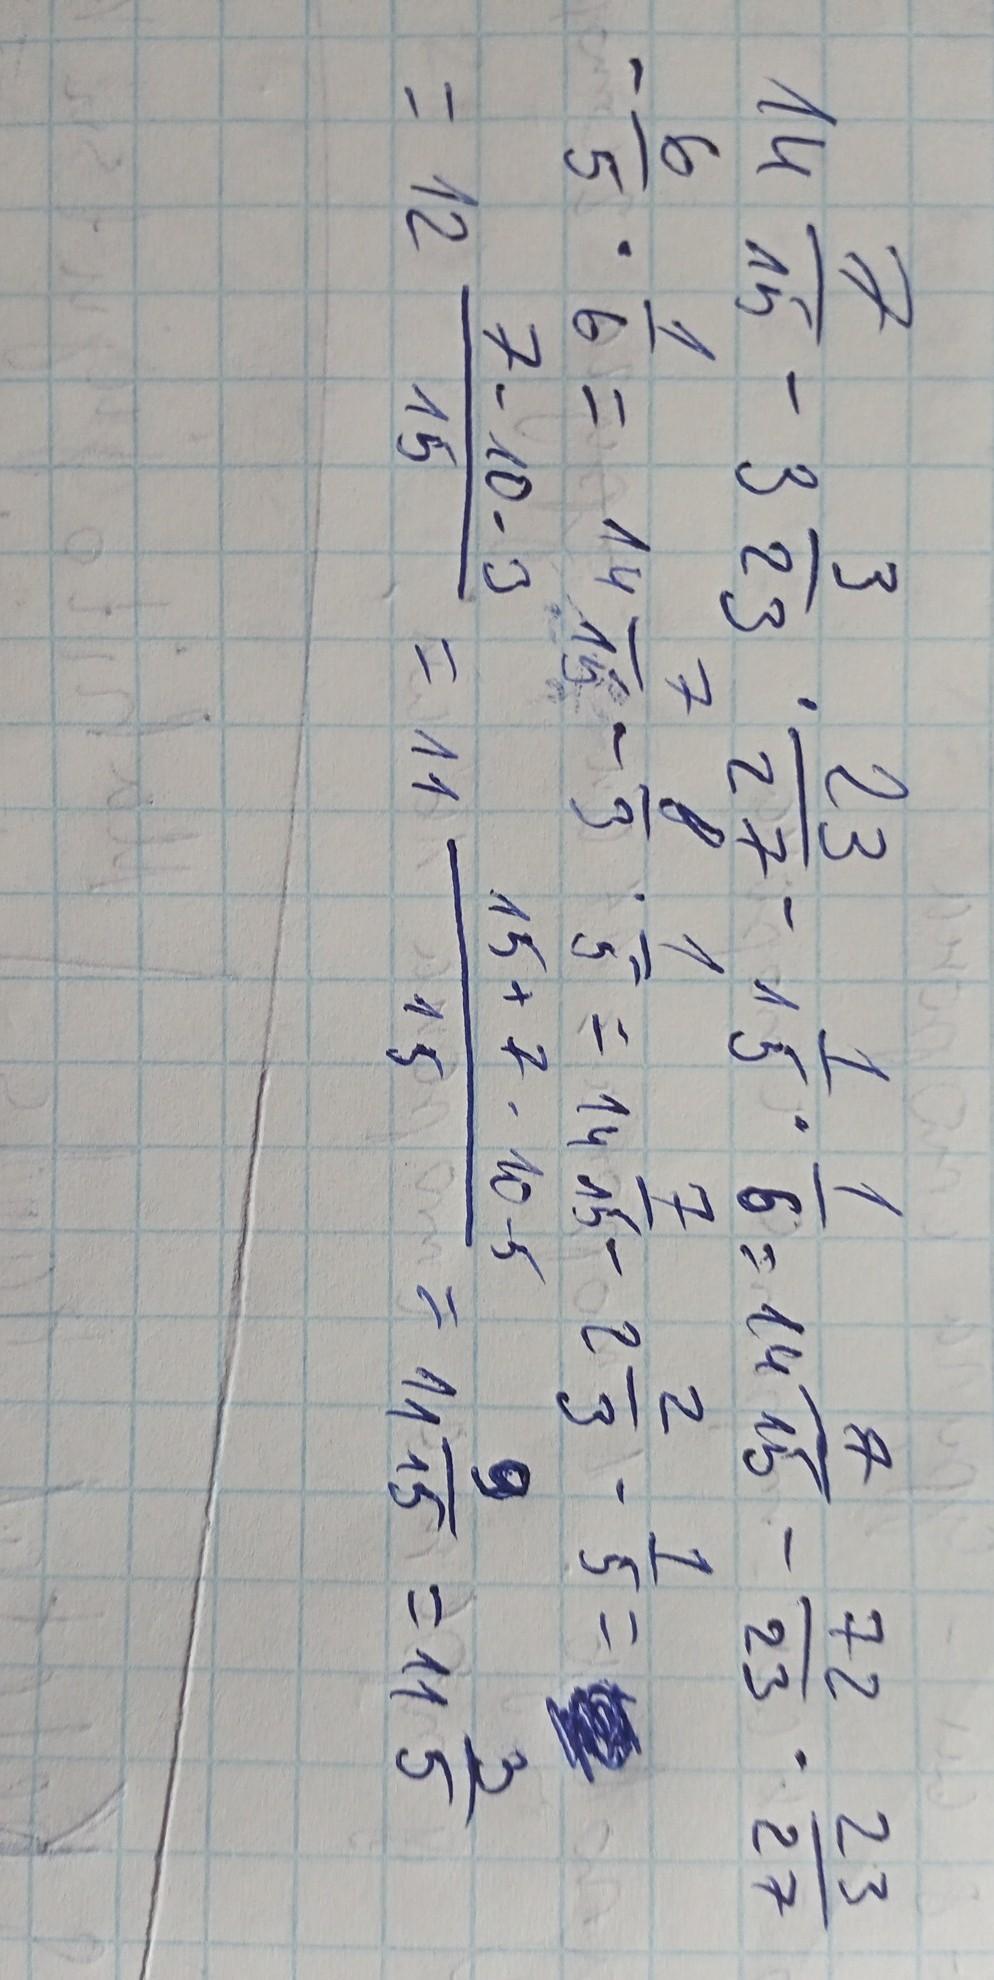 14 7/15 - 3 3/23 · 23/27 - 1 1/5 · 1/6 = 14 7/15 - 72/23 · 23/27
- 6/5 · 1/6 = 14 7/15 - 8/3 · 1/5 = 14 7/15 - 2 2/3 - 1/5 =
= 12 (7 - 10 - 3)/15 = 11 (15 + 7 - 10 - 5)/15 = 11 9/15 = 11 3/5